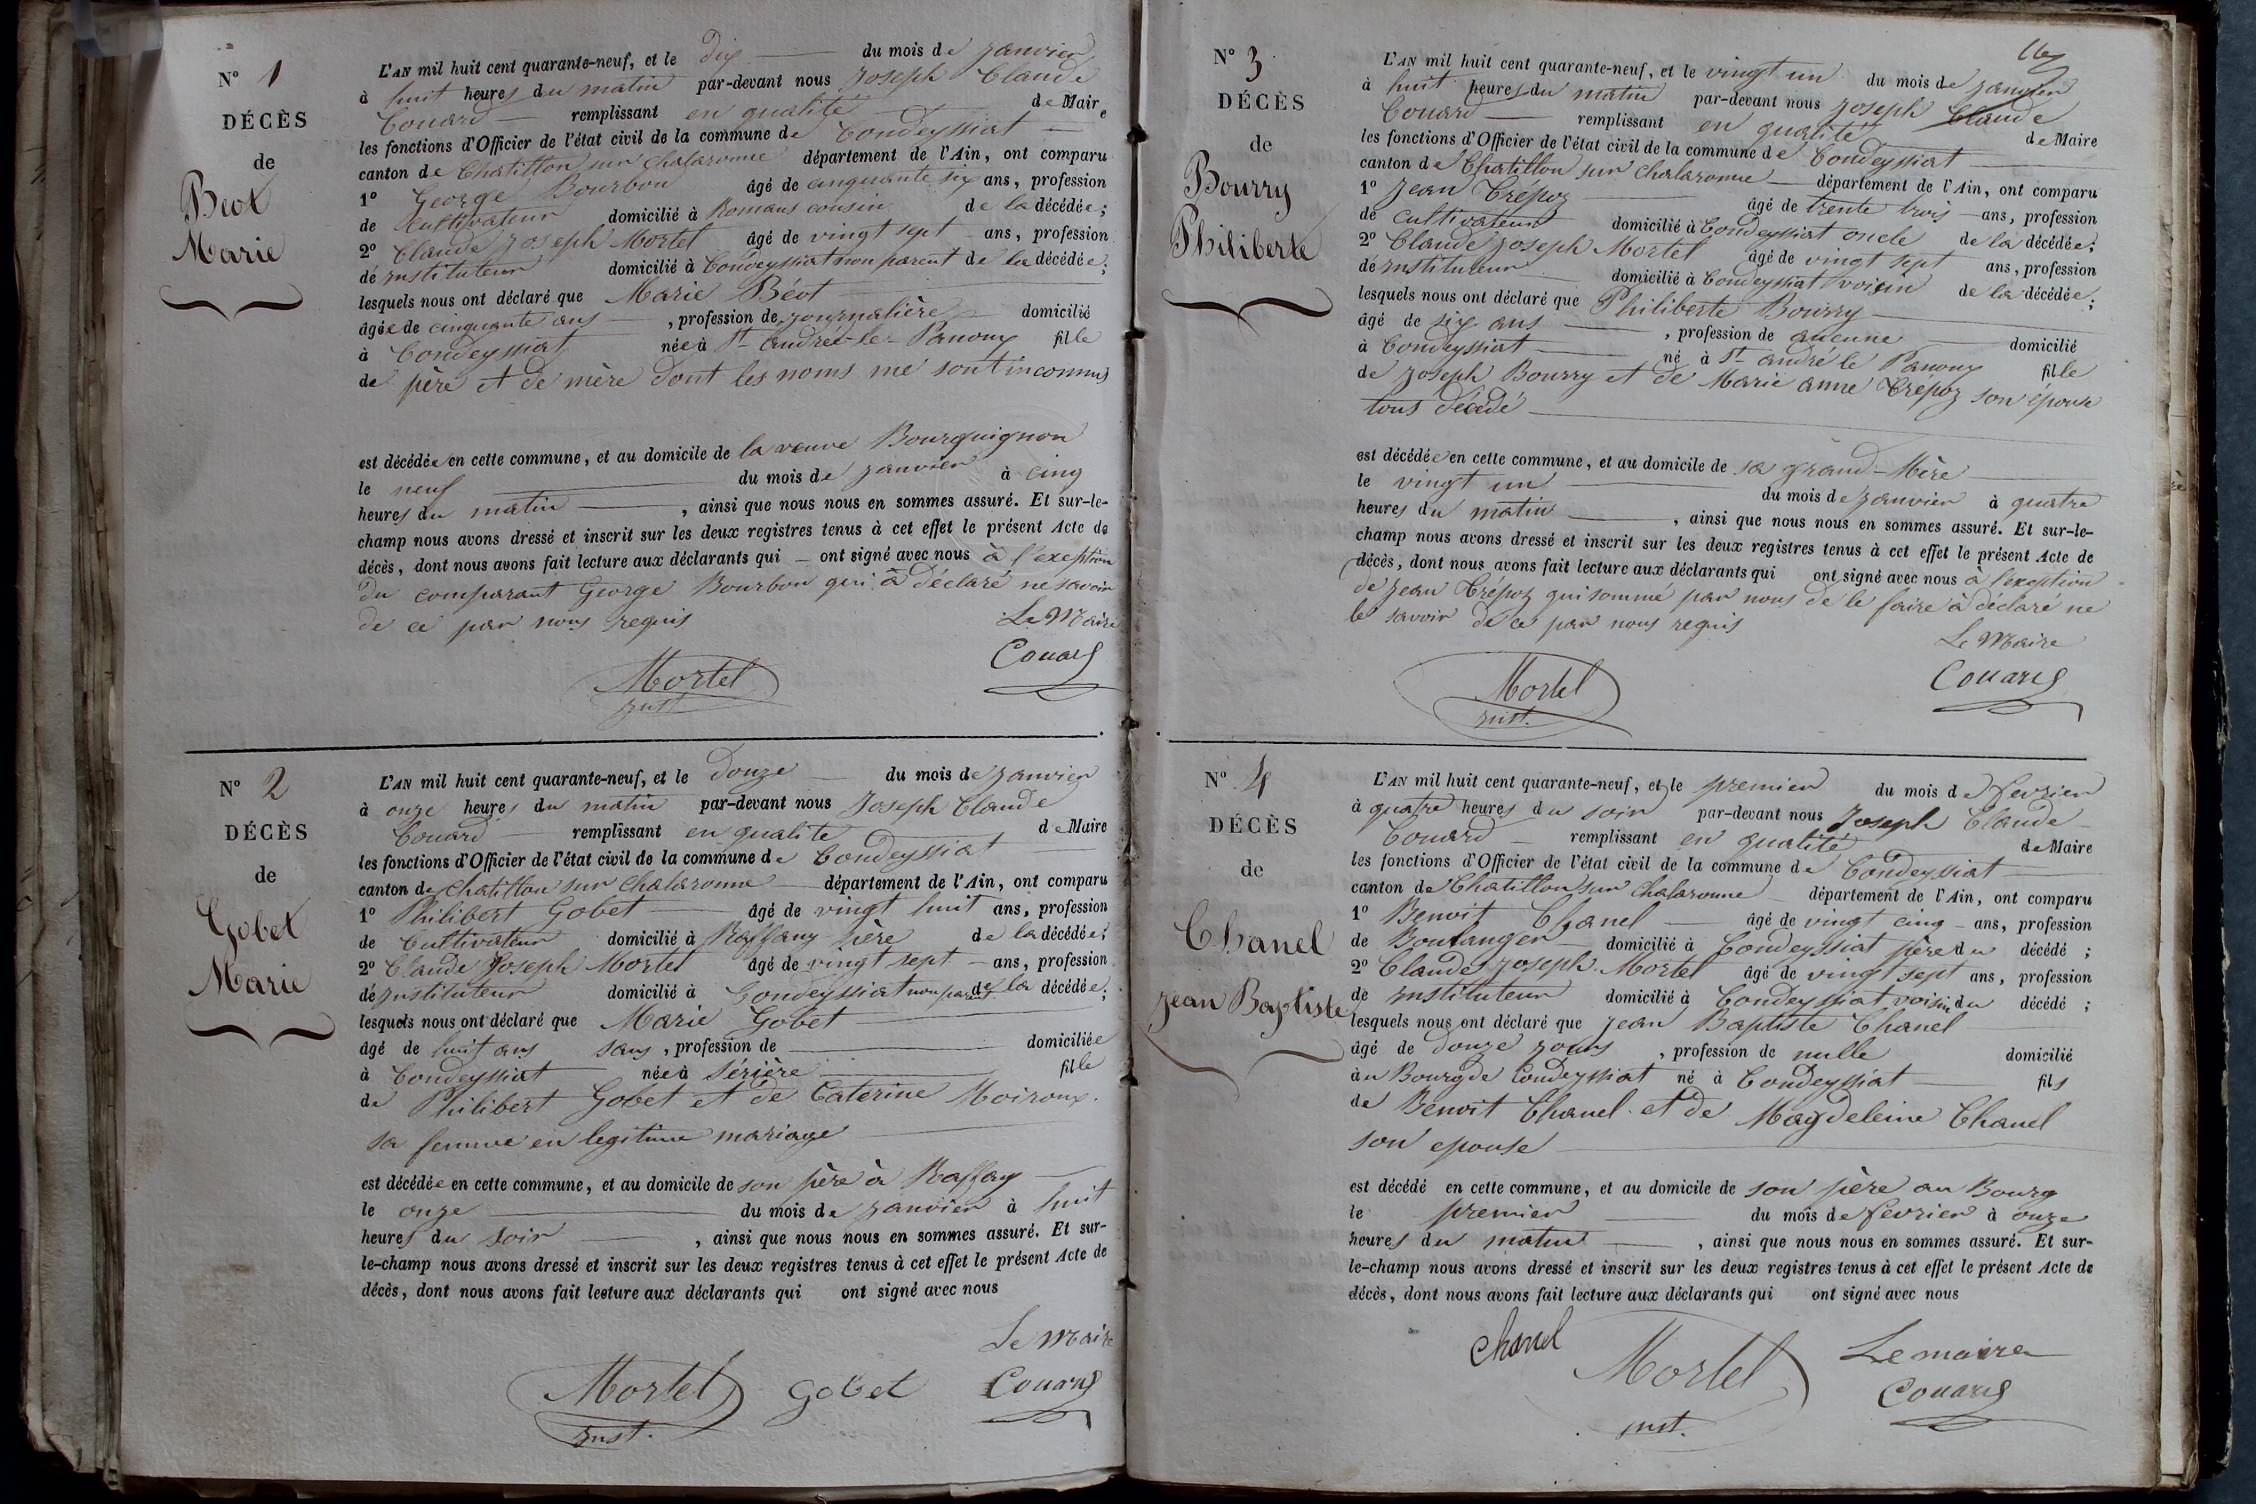 N° 1
DÉCÈS
de
Beot
Marie
L'AN mil huit cent quarante-neuf, et le dix du mois de janvier
à huit heures du matin par-devant nous Joseph Claude
Couard remplissant en qualité de Maire
les fonctions d'Officier de l'état civil de la commune de Condeyssiat
canton de Chatillon sur Chalaronne département de l'Ain, ont comparu
1° George Bourbon âgé de cinquante six ans, profession
de Cultivateur domicilié à Romans cousin de la décédée;
2° Claude Joseph Mortel âgé de vingt sept ans, profession
de instituteur domicilié à Condeyssiat non parent de la décédée;
lesquels nous ont déclaré que Marie Béot
âgée de cinquante ans, profession de journalière domicilié
à Condeyssiat née à St andré-le-Panoux fille
de père et de mère dont les noms me sont inconnus
est décédée en cette commune, et au domicile de la veuve Bourguignon
le neuf du mois de janvier à cinq
heures du matin, ainsi que nous nous en sommes assuré. Et sur-le-
champ nous avons dressé et inscrit sur les deux registres tenus à cet effet le présent Acte de
décès, dont nous avons fait lecture aux déclarants qui ont signé avec nous à l'exeption
du comparant George Bourbon qui à déclaré ne savoir
de ce par nous requis
Le Maire
Couard
Mortel
inst.
N° 2
DÉCÈS
de
Gobet
Marie
L'AN mil huit cent quarante-neuf, et le douze du mois de janvier
à onze heures du matin par-devant nous Joseph Claude
Couard remplissant en qualité de Maire
les fonctions d'Officier de l'état civil de la commune de Condeyssiat
canton de Chatillon sur Chalaronne département de l'Ain, ont comparu
1° Philibert Gobet âgé de vingt huit ans, profession
de Cultivateur domicilié à Raffany père de la décédée;
2° Claude Joseph Mortel âgé de vingt sept ans, profession
de instituteur domicilié à Condeyssiat non parent de la décédée;
lesquels nous ont déclaré que Marie Gobet
âgé de huit ans sans, profession de domiciliée
à Condeyssiat née à Sérière fille
de Philibert Gobet et de Caterine Moiroux.
sa femme en legitime mariage
est décédée en cette commune, et au domicile de son père à Raffay
le onze du mois de janvier à huit
heures du soir, ainsi que nous nous en sommes assuré. Et sur-
le-champ nous avons dressé et inscrit sur les deux registres tenus à cet effet le présent Acte de
décès, dont nous avons fait lecture aux déclarants qui ont signé avec nous
Le Maire
Mortel Gobet Couard
inst.
N° 3
DÉCÈS
de
Bourry
Philiberte
L'AN mil huit cent quarante-neuf, et le vingt un du mois de janvier
à huit heures du matin par-devant nous Joseph Claude
Couard remplissant en qualité de Maire
les fonctions d'Officier de l'état civil de la commune de Condeyssiat
canton de Chatillon sur Chalaronne département de l'Ain, ont comparu
1° Jean Crépoz âgé de trente trois ans, profession
de cultivateur domicilié à Condeyssiat oncle de la décédée;
2° Claude Joseph Mortel âgé de vingt sept ans, profession
de instituteur domicilié à Condeyssiat voisin de la décédée;
lesquels nous ont déclaré que Philiberte Bourry
âgé de six ans, profession de aucune domicilié
à Condeyssiat né à St andré le Panoux fille
de Joseph Bourry et de Marie anne Crépoz son épouse
tous décédé
est décédée en cette commune, et au domicile de sa grand-Mère
le vingt un du mois de janvier à quatre
heures du matin, ainsi que nous nous en sommes assuré. Et sur-le-
champ nous avons dressé et inscrit sur les deux registres tenus à cet effet le présent Acte de
décès, dont nous avons fait lecture aux déclarants qui ont signé avec nous à l'exeption
de Jean Crépoz qui sommé par nous de le faire à déclaré ne
le savoir de ce par nous requis
Le Maire
Couard
Mortel
inst.
N° 4
DÉCÈS
de
Chanel
Jean Baptiste
L'AN mil huit cent quarante-neuf, et le premier du mois de fevrier
à quatre heures du soir par-devant nous Joseph Claude
Couard remplissant en qualité de Maire
les fonctions d'Officier de l'état civil de la commune de Condeyssiat
canton de Chatillon sur Chalaronne département de l'Ain, ont comparu
1° Benoit Chanel âgé de vingt cinq ans, profession
de Boulanger domicilié à Condeyssiat père du décédé;
2° Claude Joseph Mortel âgé de vingt sept ans, profession
de instituteur domicilié à Condeyssiat voisin du décédé;
lesquels nous ont déclaré que Jean Baptiste Chanel
âgé de douze jours, profession de nulle domicilié
au Bourg de Condeyssiat né à Condeyssiat fils
de Benoit Chanel et de Magdeleine Chanel
son epouse
est décédé en cette commune, et au domicile de son père au Bourg
le premier du mois de fevrier à onze
heures du matin, ainsi que nous nous en sommes assuré. Et sur-
le-champ nous avons dressé et inscrit sur les deux registres tenus à cet effet le présent Acte de
décès, dont nous avons fait lecture aux déclarants qui ont signé avec nous
Chanel Mortel Le maire
inst. Couard